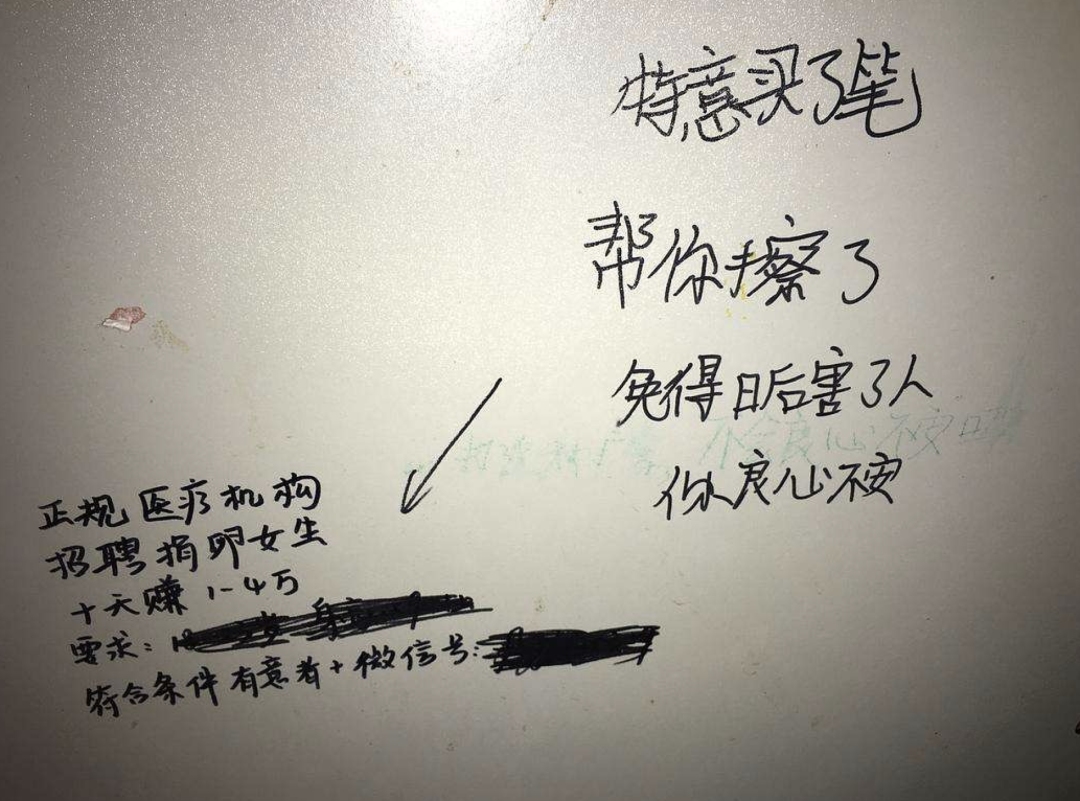 特意买了笔
帮你擦了
免得日后害了人
你良心不安
正规医疗机构
招聘捐卵女生
十天赚1-4万
要求:
符合条件有意者+微信号: